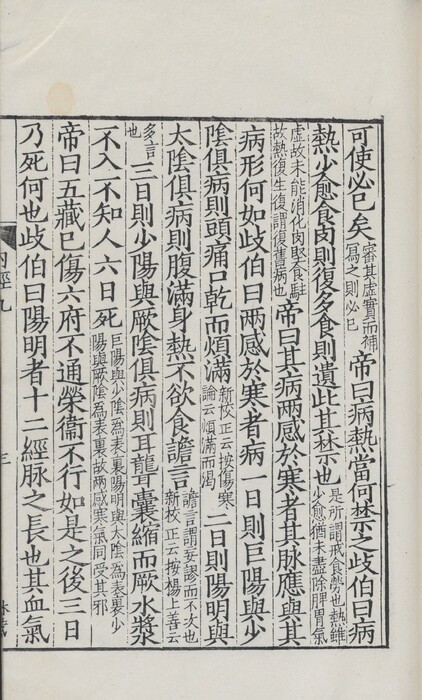 可使必已矣審其虛實而補寫之則必已帝曰病熱當何禁之歧伯曰病
熱少愈食肉則復多食則遺此其禁也是所謂戒食勞也熱雖少愈猶未盡除脾胃氣
虛故未能消化肉堅食駐故熱復生復謂復舊病也帝曰其病兩感於寒者其脉應與其
病形何如歧伯曰兩感於寒者病一日則巨陽與少
陰俱病則頭痛口乾而煩滿新校正云按傷寒論云煩滿而渴二日則陽明與
太陰俱病則腹滿身熱不欲食譫言譫言謂妄謬而不次也新校正云按楊上善云
多言也三日則少陽與厥陰俱病則耳聾囊縮而厥水漿
不入不知人六日死巨陽與少陰為表裏陽明與太陰為表裏少陽與厥陰為表裏故兩感寒氣同受其邪
帝曰五藏已傷六府不通榮衞不行如是之後三日
乃死何也歧伯曰陽明者十二經脉之長也其血氣
內經九
三